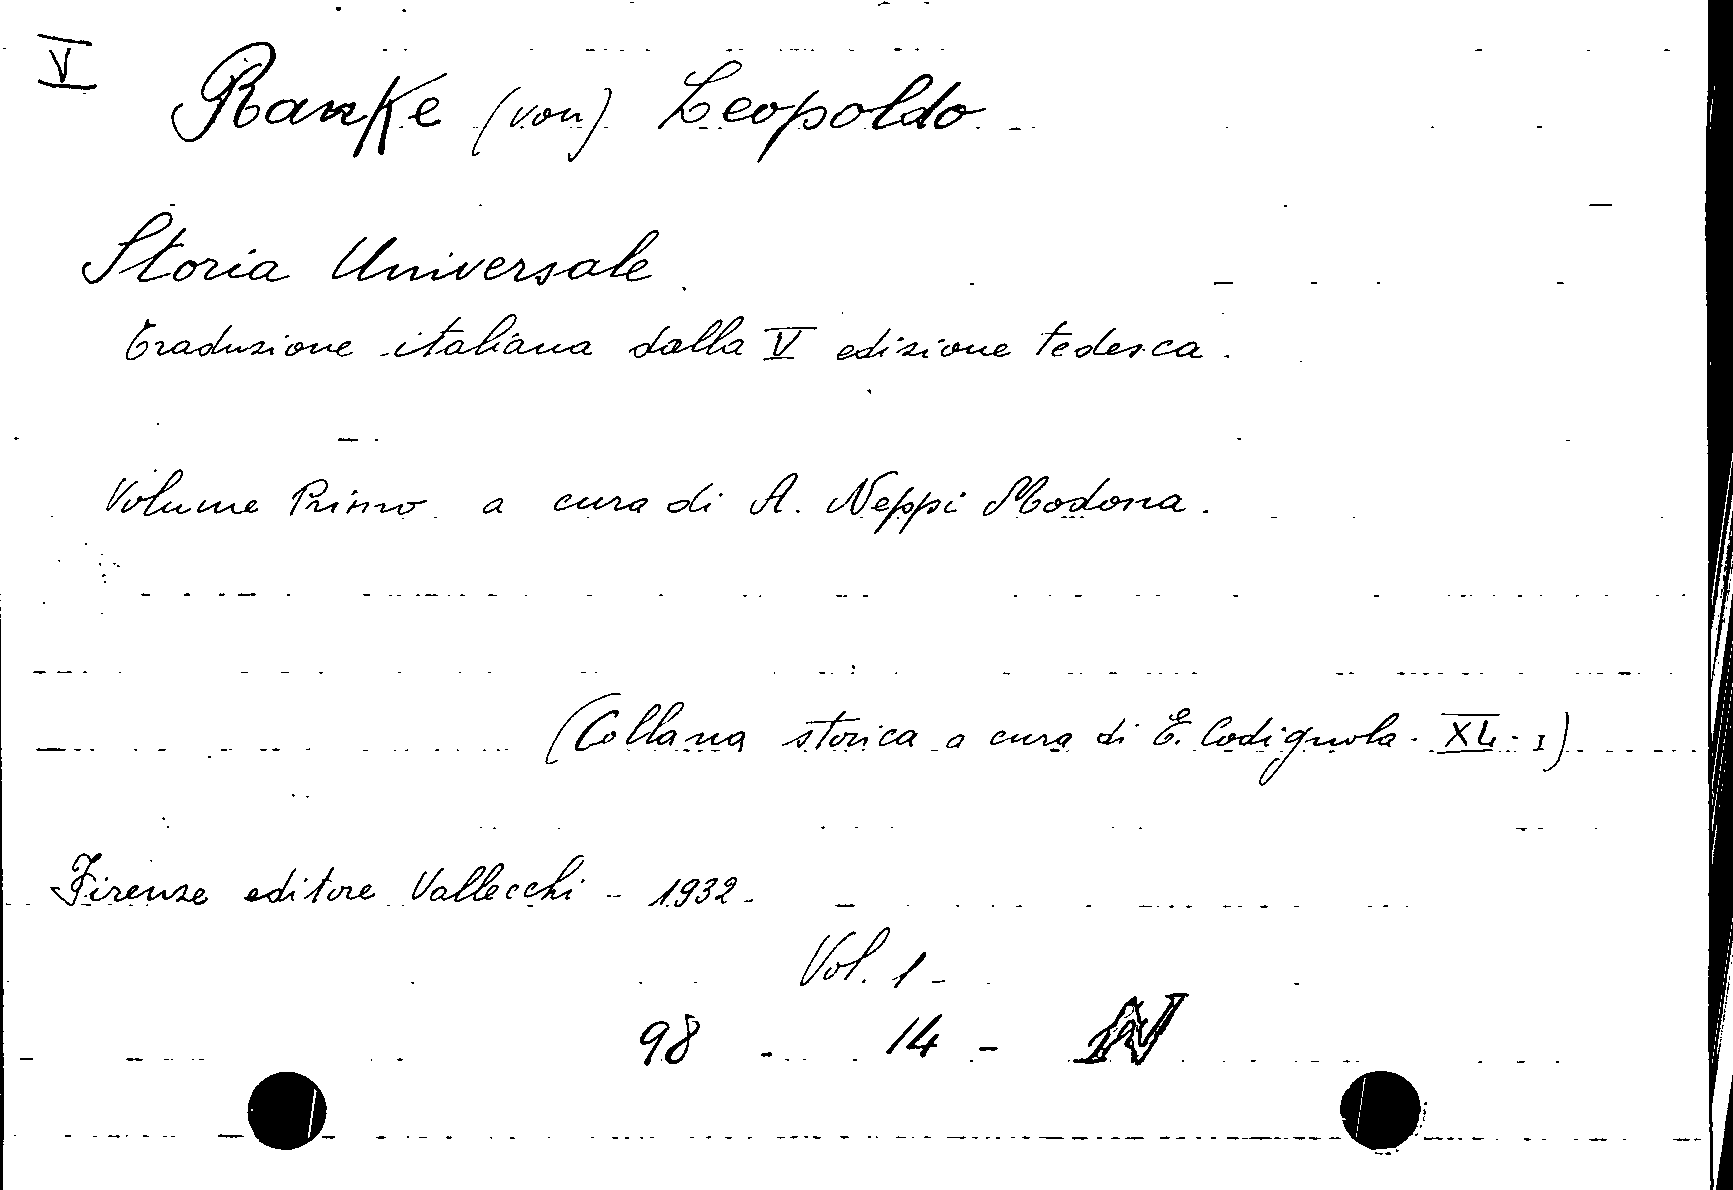 V
Ranke (von) Leopoldo
Storia Universale
Traduzione italiana dalla V edizione tedesca.
Volume Primo a cura di A. Neppi Modona.
(Collana storica a cura di E. Codignola. XL. I)
Firenze editore Vallecchi - 1932-
Vol. 1-
98 - 14 - N